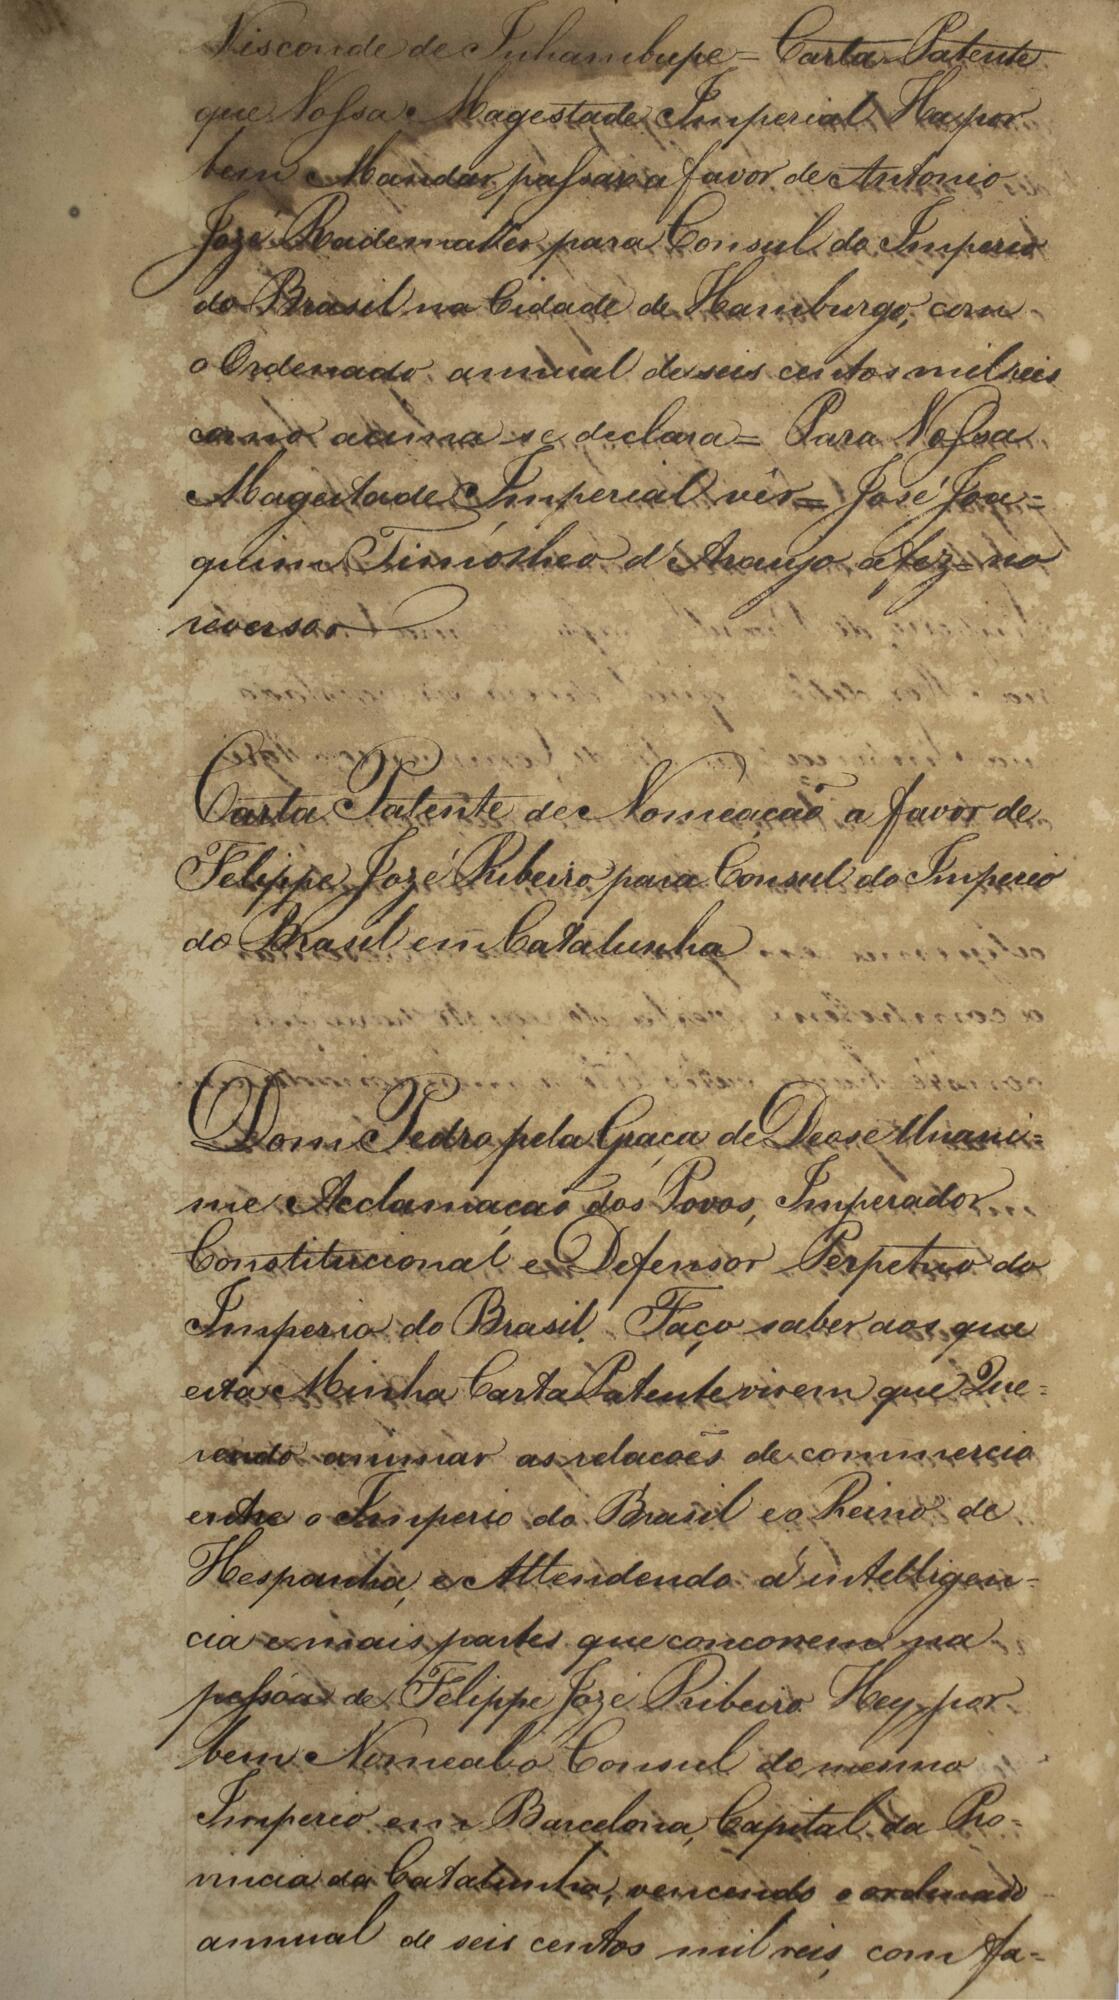 Visconde de Inhambupe = Carta Patente
que Vossa Magestade Imperial Ha por
bem Mandar passar a favor de Antonio
Jozé Rademaker para Consul do Imperio
do Brasil na Cidade de Hamburgo, com
o Ordenado annual de seis centos mil reis
como acima se declara = Para Vossa
Magestade Imperial vêr = José Joa=
quim Timotheo d'Araujo a fez = no
reverso

Carta Patente de Nomeação a favor de
Felippe Jozé Ribeiro, para Consul do Imperio
do Brasil em Catalunha

Dom Pedro pela Graça de Deos e Unani=
me Acclamação dos Povos, Imperador
Constitucional e Defensor Perpetuo do
Imperio do Brasil. Faço saber aos que
esta Minha Carta Patente virem que Que=
rendo animar as relacoẽs de commercio
entre o Imperio do Brasil e o Reino de
Hespanha, e Attendendo á intelligen=
cia e mais partes que concorrem na
pessoa de Felippe Jozé Ribeiro Hey por
bem Nomealo Consul do mesmo
Imperio em Barcelona, Capital da Pro=
vincia da Catalunha, vencendo o ordenado
annual de seis centos mil reis, com fa=